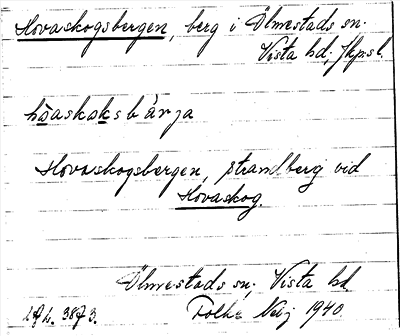 Hovaskogsbergen, berg i Ölmestads sn.
Vista hd, Jkpsl.
hòaskoksbärja
Hovaskogsbergen, strandberg vid
Hovaskog.
Ölmestads sn, Vista hd
Folke Neij 1940.